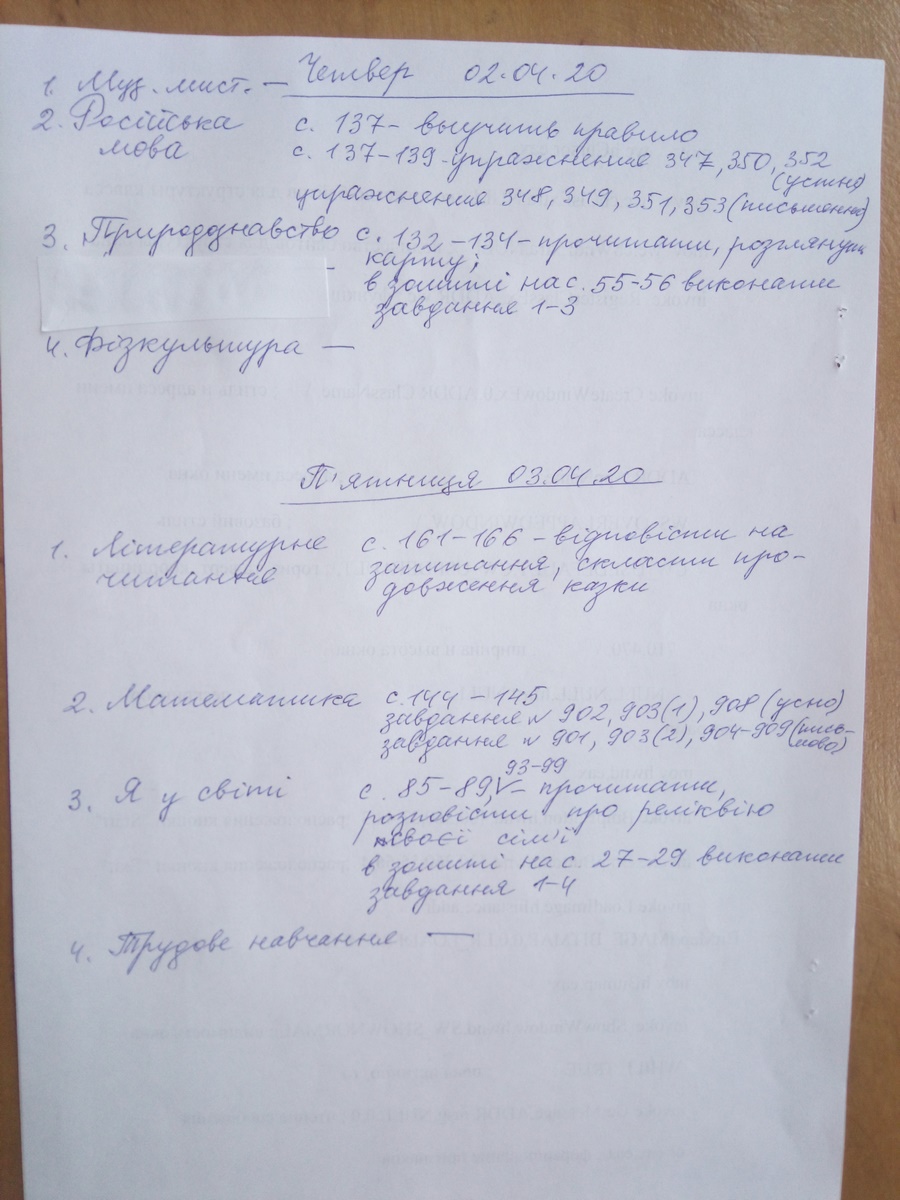 Четвер 02.04.20
1. Муз. мист. —
2. Російська мова
с. 137 – выучить правило
с. 137–139 – упражнение 347, 350, 352 (устно)
упражнение 348, 349, 351, 353 (письменно)
3. Природознавство
с. 132 – 134 – прочитати, розглянути
карту;
в зошиті на с. 55-56 виконати
завдання 1-3
4. Фізкультура —
П'ятниця 03.04.20
1. Літературне читання
с. 161–166 – відповісти на
запитання, скласти про-
довження казки
2. Математика
с. 144 – 145
завдання № 902, 903(1), 908 (усно)
завдання № 901, 903(2), 904-909 (пись-
мово)
3. Я у світі
93-99
с. 85–89, V – прочитати,
розповісти про реліквію
твоєї сім'ї
в зошиті на с. 27-29 виконати
завдання 1-4
4. Трудове навчання —